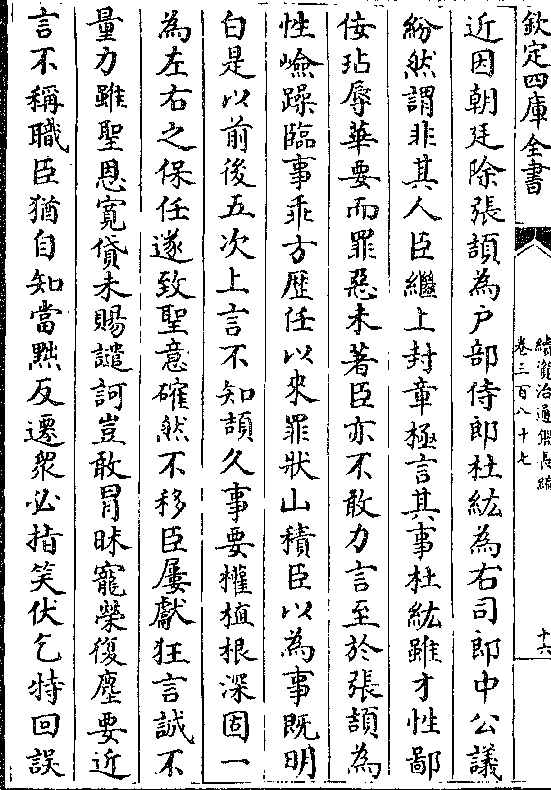 欽定四庫全書
續資治通鑑長編
卷三百八十七
十六
近因朝廷除張頡為户部侍郎杜紘為右司郎中公議
紛然謂非其人臣繼上封章極言其事杜紘雖才性鄙
佞玷辱華要而罪惡未著臣亦不敢力言至於張頡為
性嶮躁臨事乖方歴任以來罪狀山積臣以為事既明
白是以前後五次上言不知頡久事要權植根深固一
為左右之保任遂致聖意確然不移臣屢獻狂言誠不
量力雖聖恩寛貸未賜譴訶豈敢冐昧寵榮復塵要近
言不稱職臣猶自知當黙反遷衆必指笑伏乞特回誤